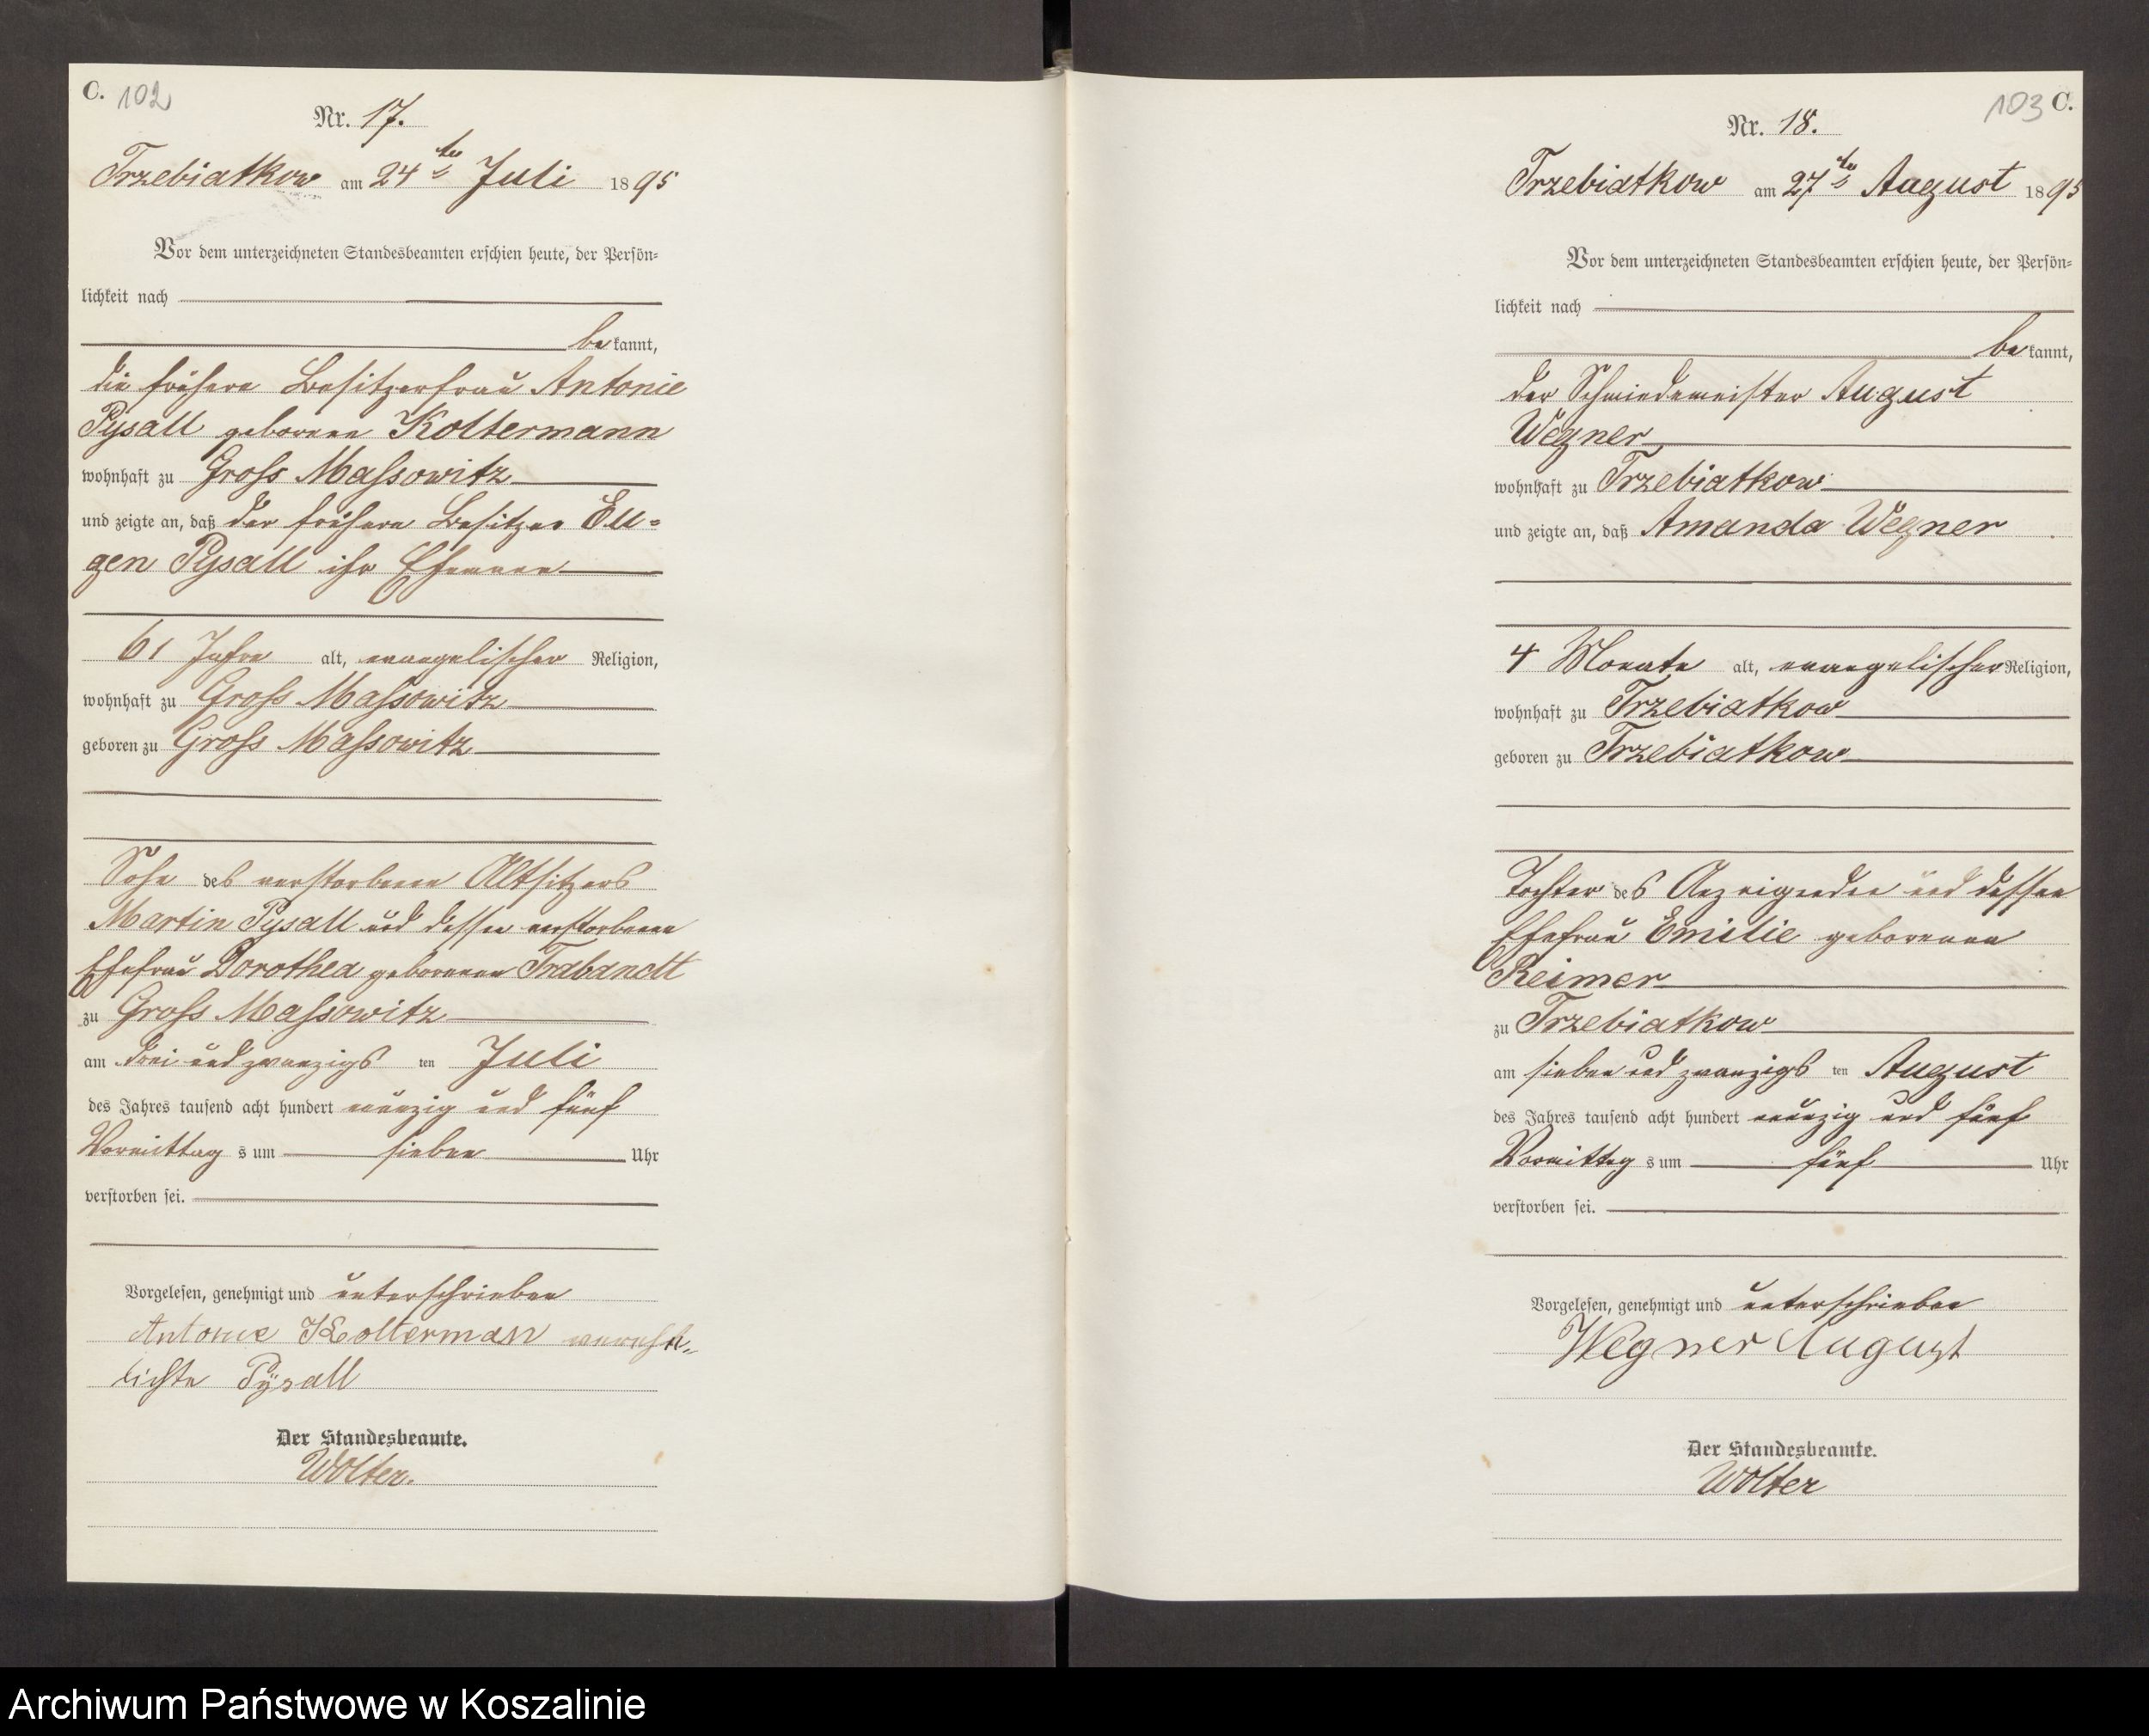 C. 102
Nr. 17.
Trzebiatkow am 24ten Juli 1895
Vor dem unterzeichneten Standesbeamten erschien heute, der Persön-
lichkeit nach
bekannt,
die frühere Besitzerfrau Antonie
Pysall geborene Koltermann
wohnhaft zu Gross Massowitz
und zeigte an, daß der frühere Besitzer Eu-
gen Pysall ihr Ehemann
61 Jahre alt, evangelischer Religion,
wohnhaft zu Gross Massowitz
geboren zu Gross Massowitz
Sohn des verstorbenen Altsitzers
Martin Pysall und dessen verstorbenen
Ehefrau Dorothea geborenen Trabandt
zu Gross Massowitz
am drei und zwanzigsten Juli
des Jahres tausend acht hundert neunzig und fünf
Vormittags um sieben Uhr
verstorben sei.
Vorgelesen, genehmigt und unterschrieben
Antonie Koltermann
lichte Pÿsall
Der Standesbeamte.
Wolter.
103 C.
Nr. 18.
Trzebiatkow am 27ten August 1895
Vor dem unterzeichneten Standesbeamten erschien heute, der Persön-
lichkeit nach
bekannt,
der Schmiedemeister August
Wegner
wohnhaft zu Trzebiatkow
und zeigte an, daß Amanda Wegner
4 Monate alt, evangelischer Religion,
wohnhaft zu Trzebiatkow
geboren zu Trzebiatkow
Tochter des Anzeigenden und dessen
Ehefrau Emilie geborenen
Reimer
zu Trzebiatkow
am sieben und zwanzigsten August
des Jahres tausend acht hundert neunzig und fünf
Vormittags um fünf Uhr
verstorben sei.
Vorgelesen, genehmigt und unterschrieben
Wegner August
Der Standesbeamte.
Wolter
Archiwum Państwowe w Koszalinie